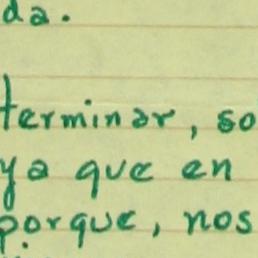 da.
terminar, so
ya que en
porque, nos